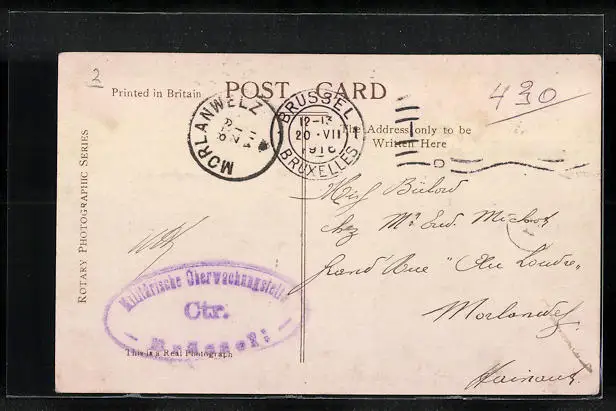 2
Printed in Britain
POST CARD
430
ROTARY PHOTOGRAPHIC SERIES
MORLANWELZ
BRUSSEL
12-13
20 · VII
1916
BRUXELLES
The Address only to be
Written Here
Miss Bülow
chez Mr
Grand Rue "Au Louvre"
Morlanwelz
Hainaut
Militärische Überwachungsstelle
Ctr.
Brüssel
This is a Real Photograph